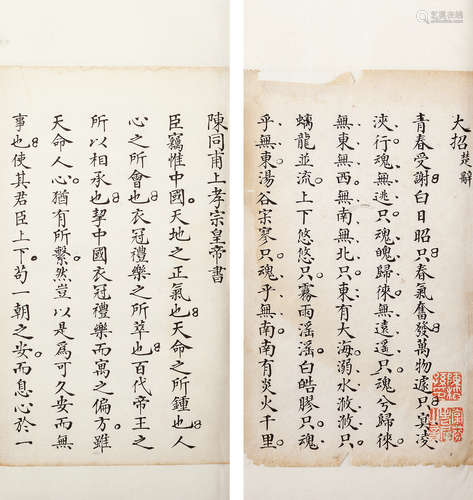 大招楚辭
青春受謝白日昭只春氣奮發萬物遽只冥凌
浹行魂無逃只魂魄歸徠無遠遙只魂兮歸徠
無東無西無南無北只東有大海溺水浟浟只
螭龍並流上下悠悠只霧雨淫淫白皓膠只魂
乎無東湯谷宗寥只魂乎無南南有炎火千里
陳同甫上孝宗皇帝書
臣竊惟中國天地之正氣也天命之所鍾也人
心之所會也衣冠禮樂之所萃也百代帝王之
所以相承也挈中國衣冠禮樂而寓之偏方雖
天命人心猶有所繫然豈以是爲可久安而無
事也使其君臣上下苟一朝之安而息心於一